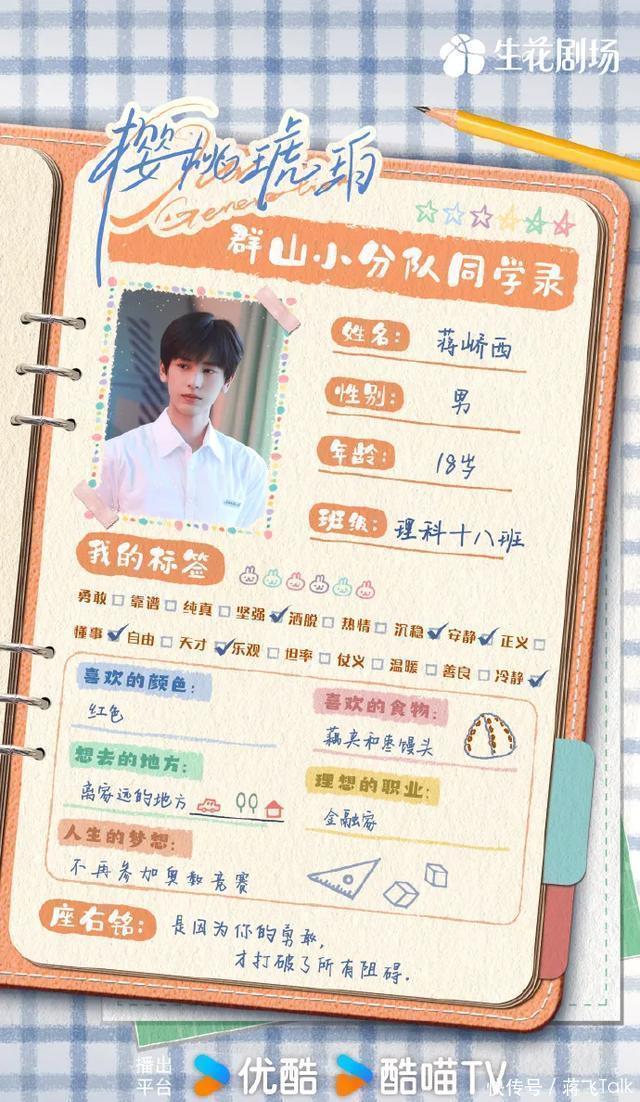 生花剧场
樱桃琥珀
Generation
群山小分队同学录
姓名: 蒋峤西
性别: 男
年龄: 18岁
班级: 理科十八班
我的标签
勇敢□ 靠谱□ 纯真□ 坚强☑ 洒脱□ 热情□ 沉稳☑ 安静☑ 正义□
懂事☑ 自由□ 天才☑ 乐观□ 坦率□ 仗义□ 温暖□ 善良□ 冷静☑
喜欢的颜色:
红色
喜欢的食物:
藕夹和枣馒头
想去的地方:
离家远的地方
理想的职业:
金融家
人生的梦想:
不再参加奥数竞赛
座右铭: 是因为你的勇敢,
才打破了所有阻碍.
播出平台 优酷 酷喵TV
快传号 / 蒋飞Talk